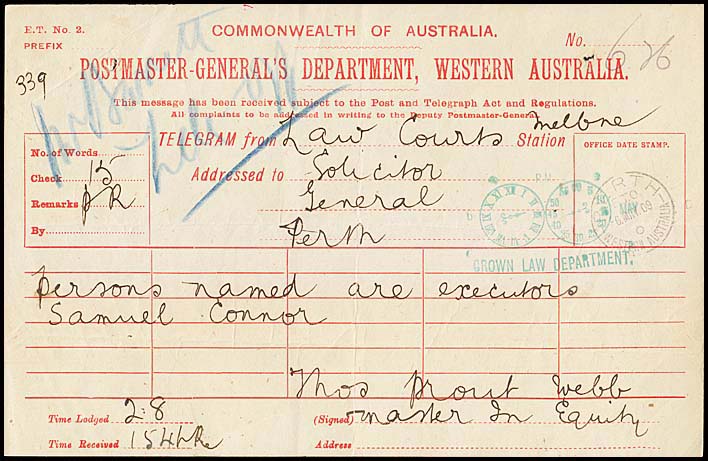 E.T. No. 2. COMMONWEALTH OF AUSTRALIA.
PREFIX No. 626
339 POSTMASTER-GENERAL'S DEPARTMENT, WESTERN AUSTRALIA.
This message has been received subject to the Post and Telegraph Act and Regulations.
All complaints to be addressed in writing to the Deputy Postmaster-General
TELEGRAM from Law Courts Station Melbne OFFICE DATE STAMP.
No. of Words
Check 15
Remarks
By
Addressed to Solicitor
General
Perth
P.M.
PERTH
6 MY 09
WESTERN AUSTRALIA
CROWN LAW DEPARTMENT.
Persons named are executors
Samuel Connor
Thos Prout Webb
Time Lodged 2.8 (Signed) master In Equity
Time Received Address